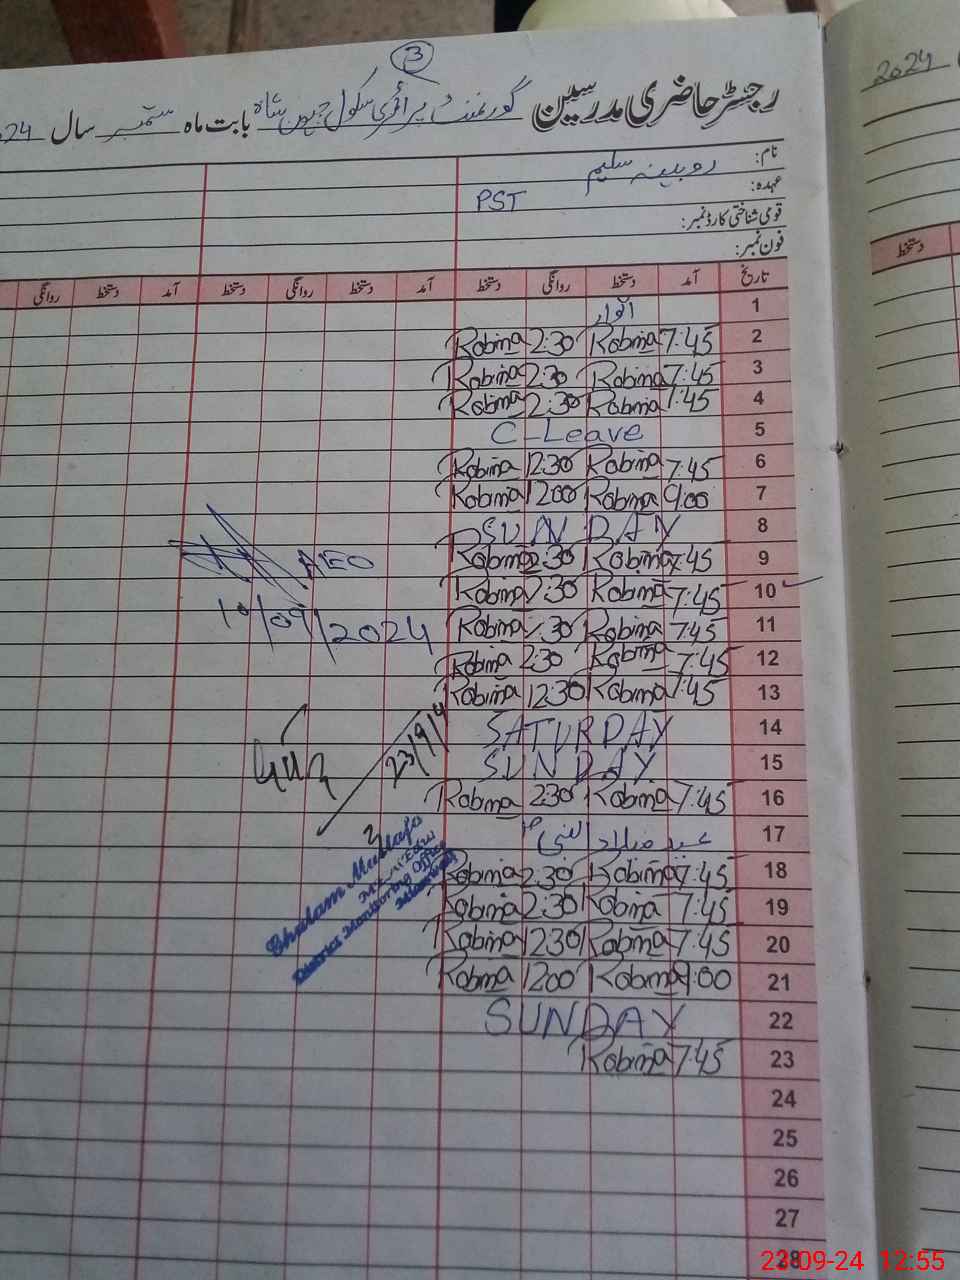 3
2024
رجسٹر حاضری مدرسین گورنمنٹ پرائمری سکول شاہ بابت ماہ ستمبر سال 24
نام: روبینہ سلیم
عہدہ: PST
قومی شناختی کارڈ نمبر:
فون نمبر:
تاریخ آمد دستخط روانگی دستخط آمد دستخط روانگی دستخط آمد دستخط روانگی
دستخط
1 اتوار
2 7:45 Robina 2:30 Robina
3 7:45 Robina 2:30 Robina
4 7:45 Robina 2:30 Robina
5 C-Leave
6 7:45 Robina 12:30 Robina
7 9:00 Robina 1200 Robina
8 SUNDAY
9 7:45 Robina 2:30 Robina
10 7:45 Robina 2:30 Robina
11 7:45 Robina 2:30 Robina
12 7:45 Robina 2:30 Robina
13 7:45 Robina 12:30 Robina
14 SATURDAY
15 SUNDAY
16 7:45 Robina 2:30 Robina
17 عید میلاد النبی
18 7:45 Robina 2:30 Robina
19 7:45 Robina 2:30 Robina
20 7:45 Robina 1230 Robina
21 9:00 Robina 1200 Robina
22 SUNDAY
23 7:45 Robina
24
25
26
27
28
AEO
10/09/2024
23/9/
Ghulam Mustafa
District Monitoring Office
Mianwali
23-09-24 12:55